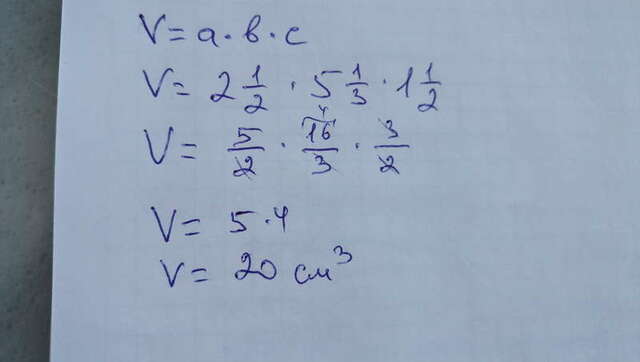 V = а · в · с
V = 2 1/2 · 5 1/3 · 1 1/2
V = 5/2 · 16/3 · 3/2 4
V = 5 · 4
V = 20 см³